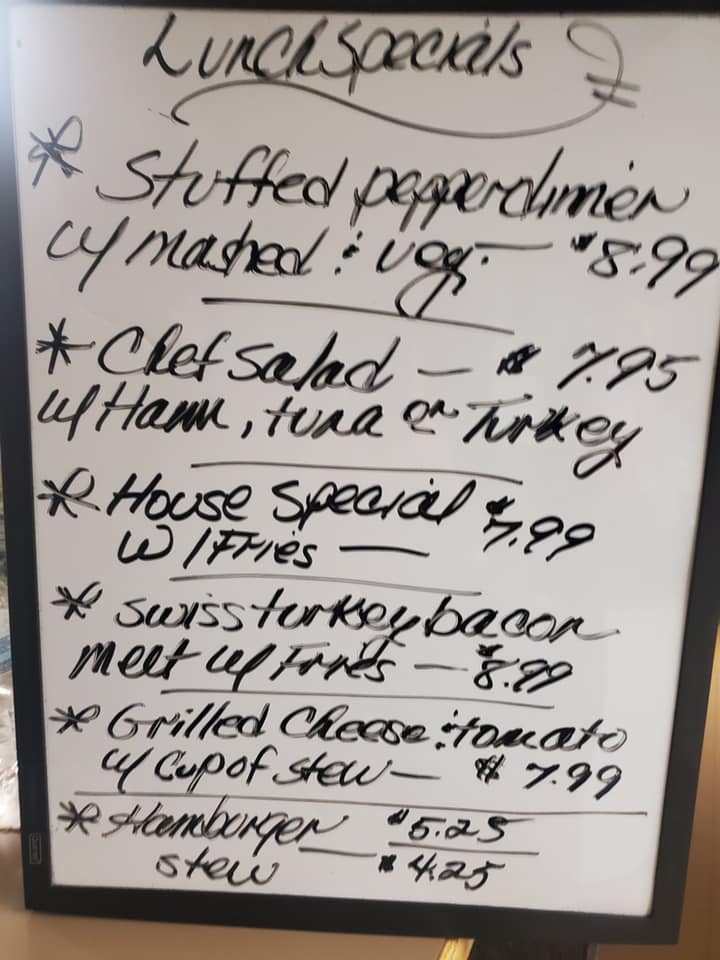 Lunch Specials
* Stuffed pepper dinner
w/ mashed & veg. — $8.99
* Chef Salad — $7.95
w/ Ham, tuna or Turkey
* House Special $7.99
w/ Fries —
* Swiss turkey bacon
melt w/ Fries — $8.99
* Grilled Cheese & tomato
w/ Cup of stew — $7.99
* Hamburger $5.25
stew — $4.25